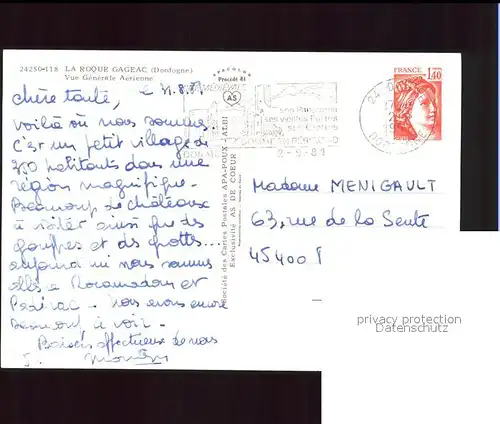 24250-118 LA ROQUE GAGEAC (Dordogne)
Vue Générale Aérienne
APA COLOR
Procédé 61
AS
FRANCE
1,40
24-DO
DORDOGNE
2-9-81
Société des Cartes Postales APA-POUX - ALBI
Exclusivité AS DE COEUR
31.8.81
Chère tante,
voilà où nous sommes.
C'est un petit village de
350 habitants dans une
région magnifique.
Beaucoup de châteaux
à visiter ainsi que des
gouffres et des grottes...
aujourd'hui nous sommes
allés à Rocamadour et
Padirac. Nous avons encore
beaucoup à voir.
Baisers affectueux de nous
Madame MENIGAULT
63, rue de la Sente
45400
privacy protection
Datenschutz